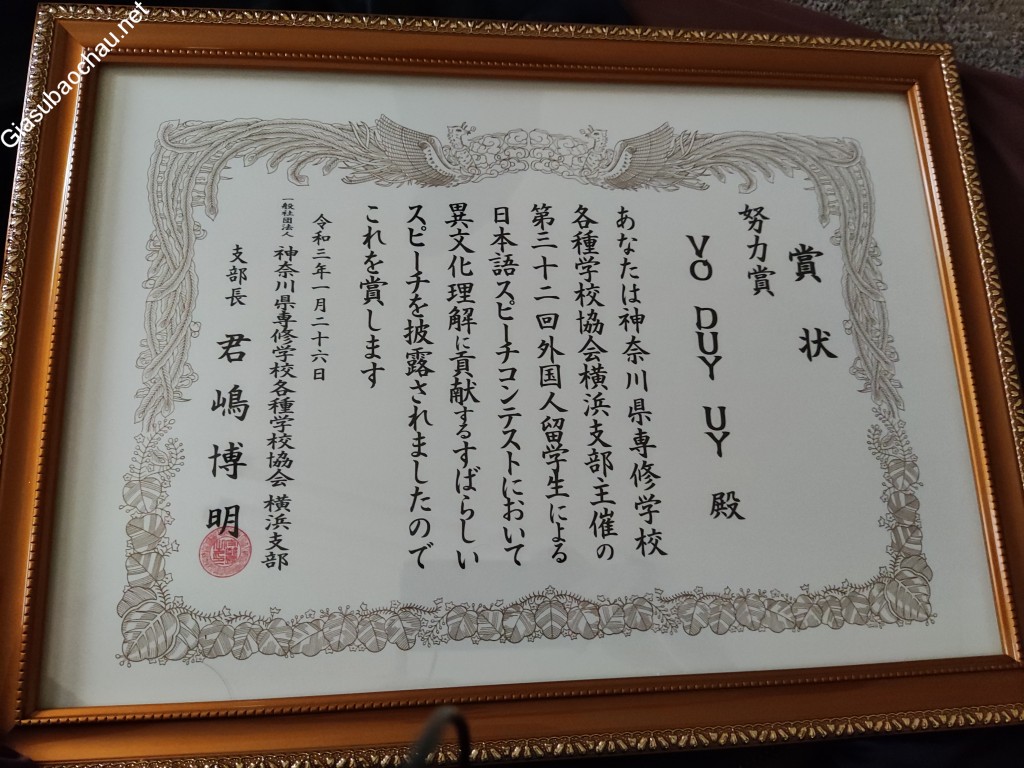 賞状
努力賞
VO DUY UY 殿
あなたは神奈川県専修学校
各種学校協会横浜支部主催の
第三十二回外国人留学生による
日本語スピーチコンテストにおいて
異文化理解に貢献するすばらしい
スピーチを披露されましたので
これを賞します
令和三年一月二十六日
一般社団法人 神奈川県専修学校各種学校協会 横浜支部
支部長 君嶋博明
Giasubaochau.net